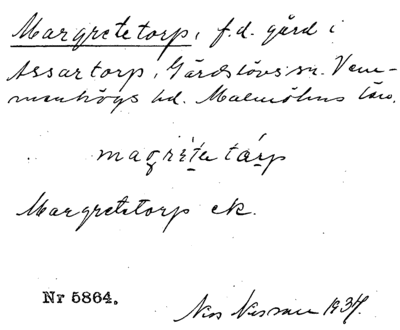 Margretetorp, f.d. gård i
Assartorp, Gärdslövs sn. Vem-
menhögs hd. Malmöhus län.
magréta tárp
Margretetorp ek.
Nr 5864.
1934.